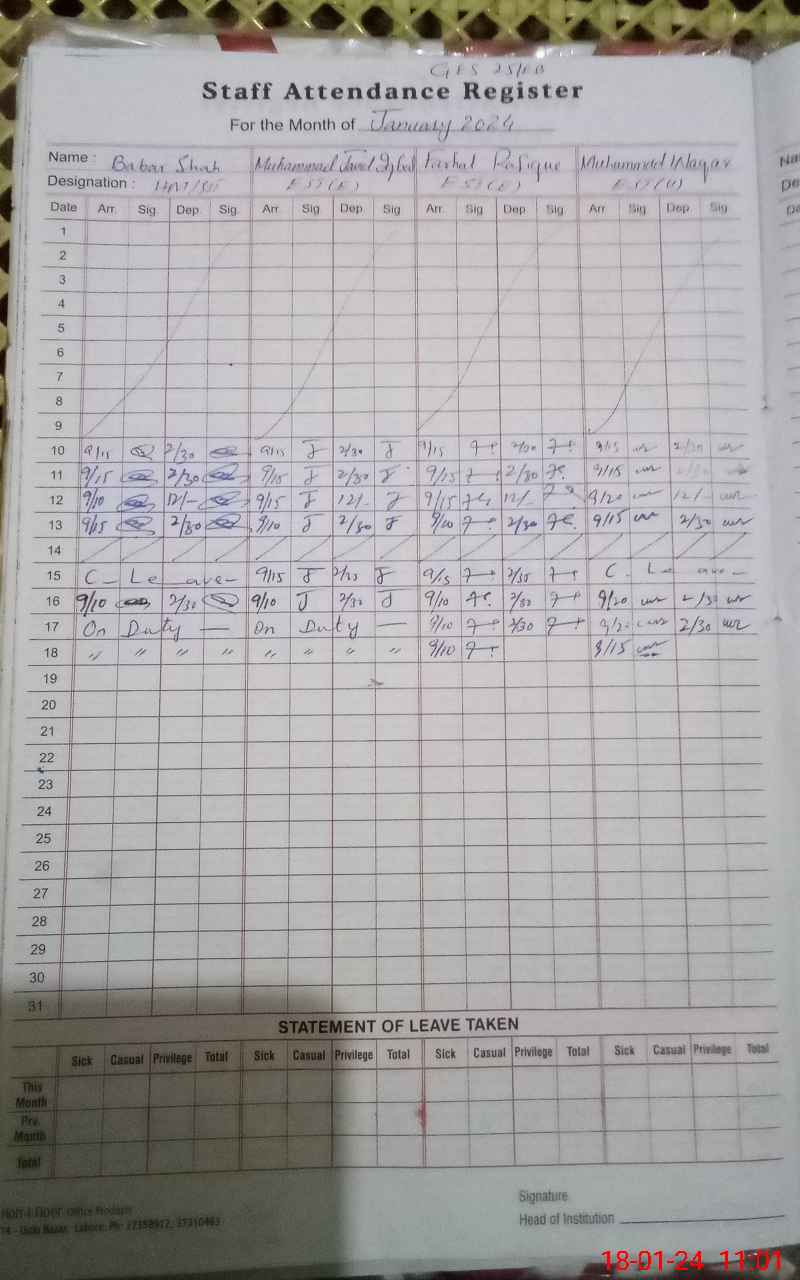 GES 25/EB
Staff Attendance Register
For the Month of January 2024
Name : Babar Shah Muhammad Javed Iqbal Farhat Rafique Muhammad Waqar
Designation : EST(E) EST(E)
Date Arr. Sig Dep. Sig. Arr. Sig Dep. Sig Arr. Sig Dep Sig Arr Sig Dep. Sig
1
2
3
4
5
6
7
8
9
10 9/15 2/30 9/15 J 2/30 J 9/15 2/30 9/15 2/30
11 9/15 2/30 9/15 J 2/30 J 9/15 2/30 9/15
12 9/10 12/- 9/15 J 12/- J 9/15 12/- 9/20 12/-
13 9/15 2/30 9/10 J 2/30 J 9/10 2/30 9/15 2/30
14
15 C - Le ave - 9/15 J J 2/30 C - Le ave -
16 9/10 2/30 9/10 J 2/30 J 9/10 2/30 9/20 2/30
17 On Duty — On Duty — 9/10 2/30 9/20 2/30
18 " " " " " " " " 9/10 9/15
19
20
21
22
23
24
25
26
27
28
29
30
31
STATEMENT OF LEAVE TAKEN
Sick Casual Privilege Total Sick Casual Privilege Total Sick Casual Privilege Total Sick Casual Privilege Total
This
Month
Pre.
Month
Total
Signature
Office Products
Head of Institution
Urdu Bazar, Lahore. Ph:
18-01-24 11:01